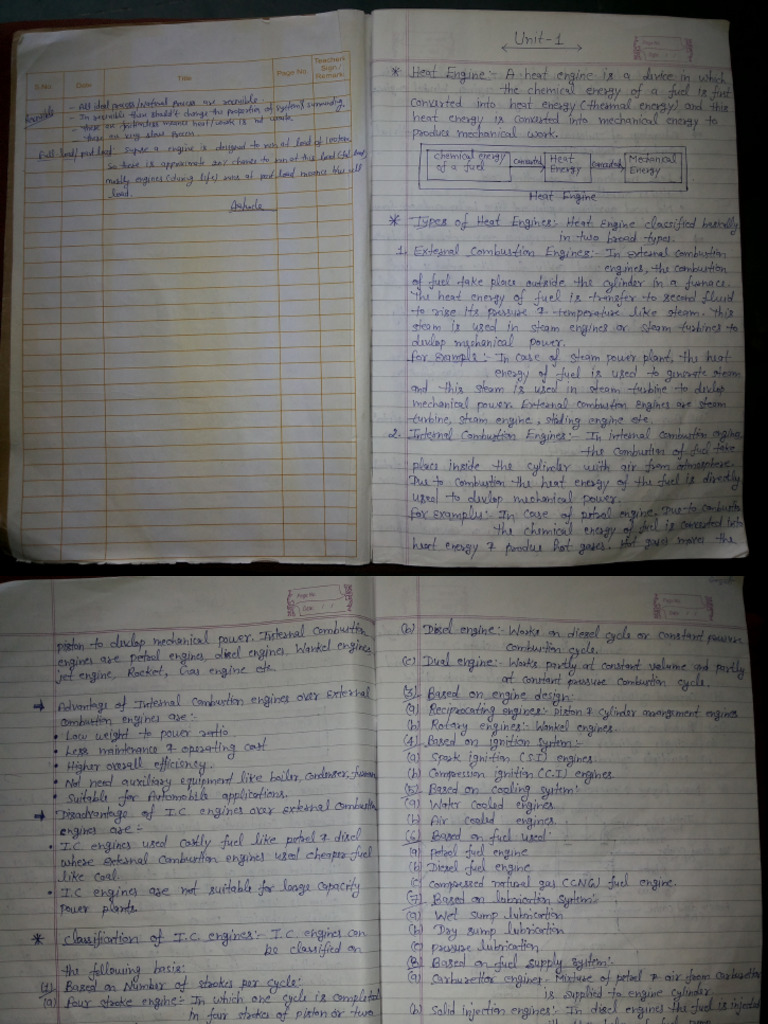 S.No.
Date
Title
Page No.
Teachers Sign / Remark
Reversible
- All ideal process/Natural Process are reversible.
- In reversible there shouldn't change the properties of system & surrounding
- these are frictionless means heat/work is not waste.
- these are very slow process.
Full load/part load: a engine is designed to run at load of
so there is approximate any chance to run at this load (full load)
mostly engines (during life) runs at part load means this
load.
Unit-1
* Heat Engine:- A heat engine is a device in which
the chemical energy of a fuel is first
converted into heat energy (thermal energy) and this
heat energy is converted into mechanical energy to
produce mechanical work.
Chemical energy of a fuel
converted
Heat Energy
converted
Mechanical Energy
Heat Engine
* Types of Heat Engines:- Heat Engine classified basically
in two broad types.
1. External Combustion Engines:- In external combustion
engines, the combustion
of fuel take place outside the cylinder in a furnace.
The heat energy of fuel is transfer to second fluid
to rise its pressure & temperature like steam. This
steam is used in steam engines or steam turbines to
devlop mechanical power.
for Example:- In case of steam power plant, the heat
energy of fuel is used to generate steam
and this steam is used in steam turbine to devlop
mechanical power. External combustion engines are steam
turbine, steam engine, engine etc.
2. Internal Combustion Engines:- In internal combustion engines
the combustion of fuel take
place inside the cylinder with air from atmosphere.
Due to combustion the heat energy of the fuel is directly
used to devlop mechanical power.
for Example:- In case of petrol engine. Due to combustion
the chemical energy of fuel is converted into
heat energy & produce hot gases. Hot gases makes the
Page No.
Date / /
piston to devlop mechanical power. Internal Combustion
engines are petrol engines, diesel engines, Wankel engines,
jet engine, Rocket, Gas engine etc.
→ Advantage of Internal combustion engines over External
combustion engines are:-
• Low weight to power ratio.
• Less maintenance & operating cost
• Higher overall efficiency.
• Not need auxiliary equipment like boiler, condenser, furnace
• Suitable for Automobile applications.
→ Disadvantage of I.C engines over external combustion
engines are:-
• I.C engines used costly fuel like petrol & disel
where external combustion engines used cheaper fuel
like coal.
• I.C engines are not suitable for large capacity
power plants.
* Classification of I.C engines:- I.C. engines can
be classified on
the following basis:
(1) Based on Number of strokes per cycle:
(a) Four stroke engine:- In which one cycle is completed
in four strokes of piston or two
(b) Disel engine:- Works on diesel cycle or constant pressure
combustion cycle.
(c) Dual engine:- Works partly at constant volume and partly
at constant pressure combustion cycle.
(3) Based on engine design:
(a) Reciprocating engines:- Piston & cylinder arrangement engines
(b) Rotary engines:- Wankel engines.
(4) Based on ignition system:-
(a) Spark ignition (S.I) engines.
(b) Compression ignition (C.I) engines.
(5) Based on cooling system:-
(a) Water cooled engines
(b) Air cooled engines.
(6) Based on fuel used:
(a) Petrol fuel engine
(b) Diesel fuel engine
(c) compressed natural gas (CNG) fuel engine.
(7) Based on lubrication system:-
(a) Wet sump lubrication
(b) Dry sump lubrication
(c) Pressure lubrication
(8) Based on fuel supply system:-
(a) Carburettor engines- Mixture of petrol & air from carburettor
is supplied to engine cylinder.
(b) Solid injection engines: In diesel engines the fuel is injected